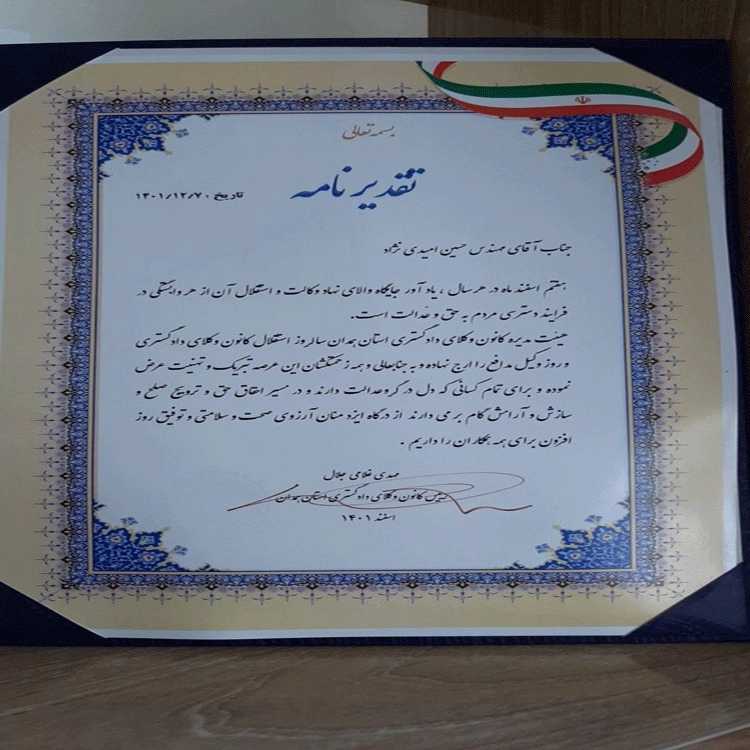 بسمه تعالی
تقدیر نامه
تاریخ ۱۴۰۱/۱۲/۷۰
جناب آقای مهندس حسین امیدی نژاد
هفتم اسفند ماه در هر سال ، یاد آور جایگاه والای نهاد وکالت و استقلال آن از هر وابستگی در
فرایند دسترسی مردم به حق و عدالت است .
هیئت مدیره کانون وکلای دادگستری استان همدان سالروز استقلال کانون وکلای دادگستری
و روز وکیل مدافع را ارج نهاده و به جنابعالی و همه زحمتکشان این عرصه تبریک و تهنیت عرض
نموده و برای تمام کسانی که دل در گرو عدالت دارند و در مسیر احقاق حق و ترویج صلح و
سازش و آرامش گام بر می دارند از درگاه ایزد منان آرزوی صحت و سلامتی و توفیق روز
افزون برای همه همکاران را داریم .
مهدی غلامی جلال
رئیس کانون وکلای دادگستری استان همدان
اسفند ۱۴۰۱